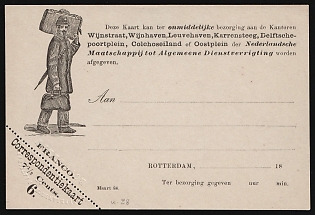 Deze Kaart kan ter onmiddelijke bezorging aan de Kantoren
Wijnstraat, Wijnhaven, Leuvehaven, Karrensteeg, Delftsche-
poortplein, Calchoseiland of Oostplein der Nederlandsche
Maatschappij tot Algemeene Dienstverrigting worden
afgegeven.
Aan
FRANCO.
Correspondentiekaart
6.
ROTTERDAM, 18
Maart 8s.
Ter bezorging gegeven uur min.